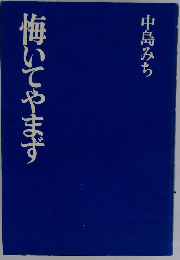 中島みち
悔いてやまず